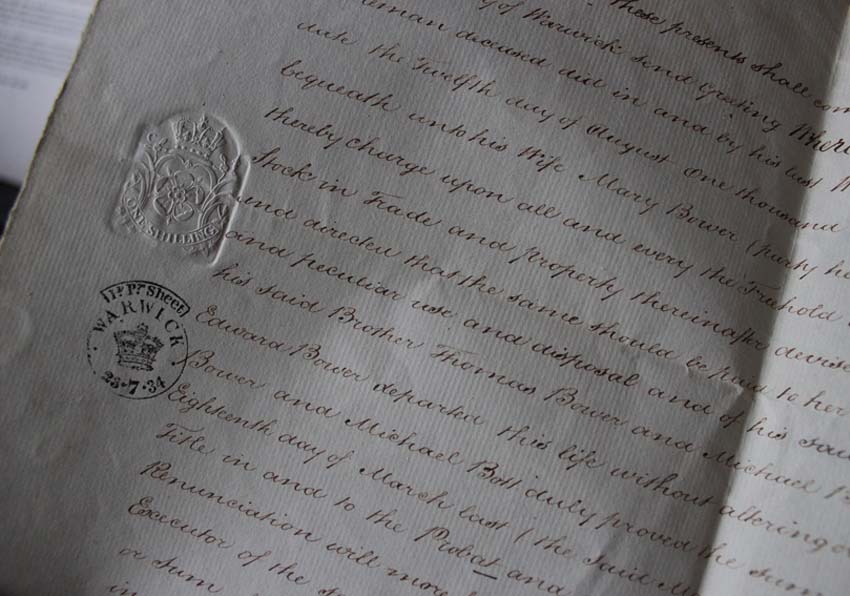 of Warwick send Greeting Where
These presents shall com
deceased did in and by his last W
date the Twelfth day of August One thousand
bequeath unto his Wife Mary Bower (party he
thereby charge upon all and every the Freehold
Stock in Trade and property thereinafter devise
and directed that the same should be paid to her
and peculiar use and disposal and of his said
his said Brother Thomas Bower and Michael B
Edward Bower departed this life without altering o
Bower and Michael Bott duly proved the same
Eighteenth day of March last (the said M
Title in and to the Probat and
Renunciation will more
Executor of the
or sum
in
ONE SHILLING
Sheet
WARWICK
23-7-34